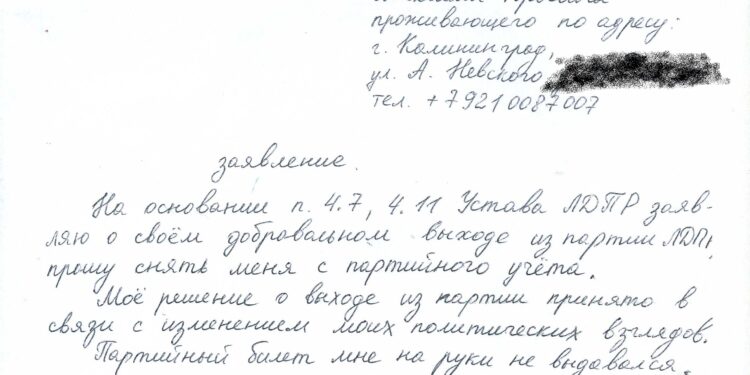 проживающего по адресу:
г. Калининград,
ул. А. Невского
тел. +79210087007
заявление.
На основании п. 4.7, 4.11 Устава ЛДПР заяв-
ляю о своём добровальном выходе из партии ЛДПР,
прошу снять меня с партийного учёта.
Моё решение о выходе из партии принято в
связи с изменением моих политических взглядов.
Партийный билет мне на руки не выдавался.